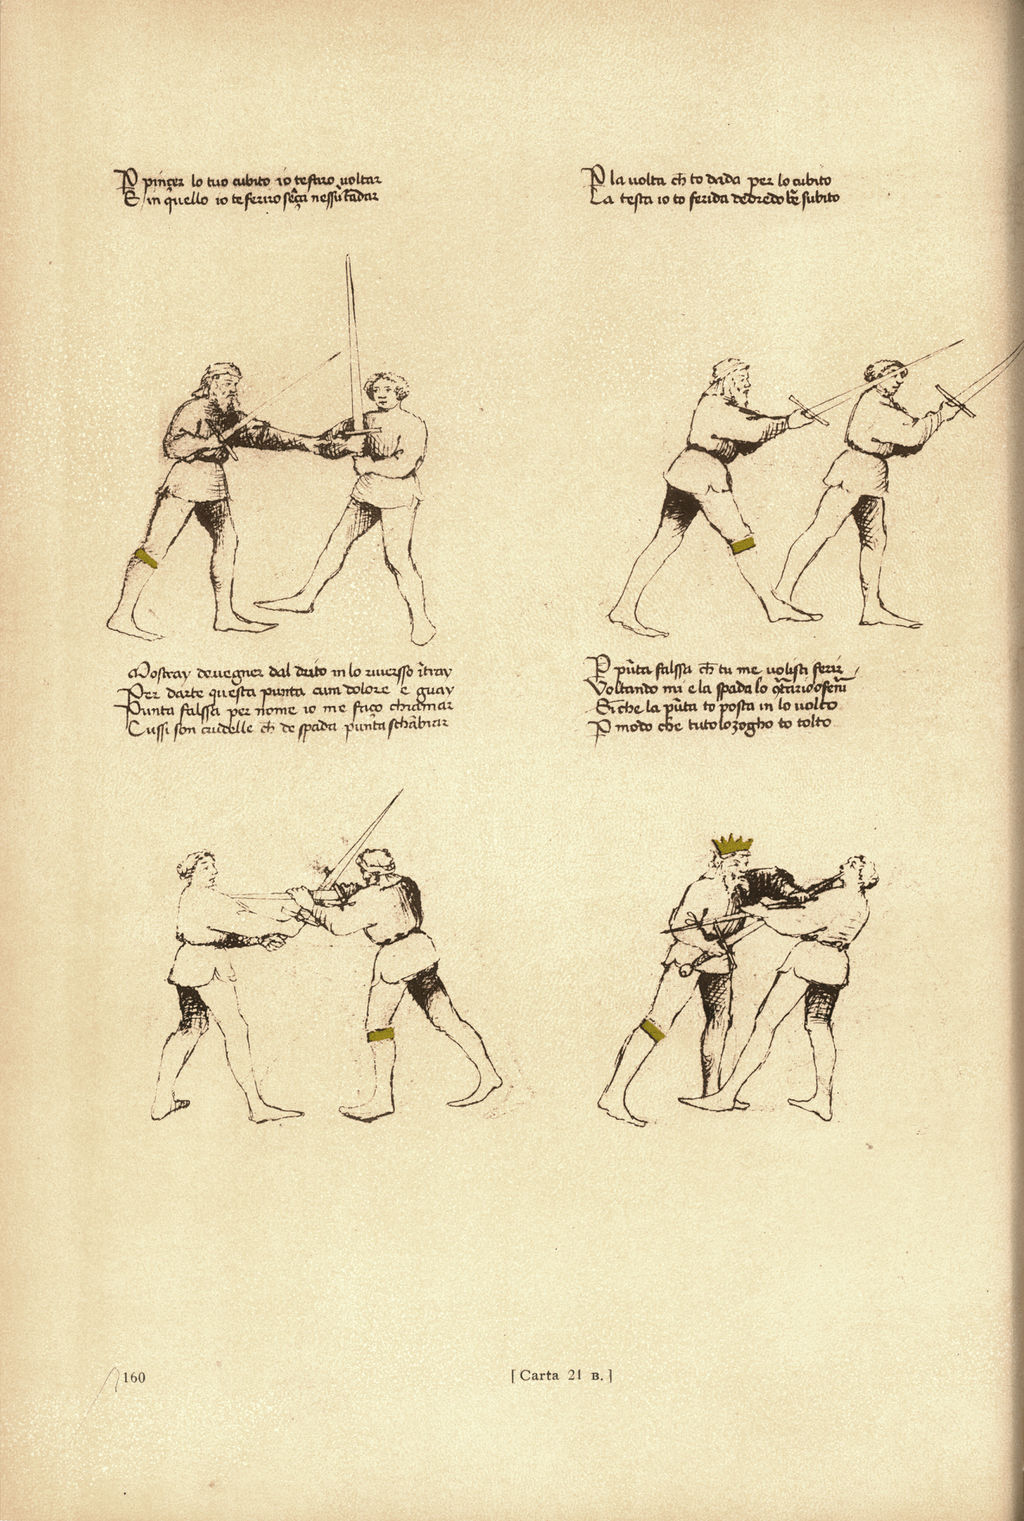 P pinçer lo tuo cubito io te faro voltar
E in quello io te feriro sença nessū tardar
P la volta ch̄ to dada per lo cubito
La testa io to ferida dedredo bē subito
Mostray de vegner dal drito in lo riversso ītray
Per darte questa punta cum dolore e guay
Punta falssa per nome io me faço chiamar
Cussi son crudelle ch̄ de spada punta schābiar
P pūta falssa ch̄ tu me volisti ferir
Voltando mi e la spada lo
Si che la pūta to posta in lo volto
P modo che tuto lo zogho to tolto
160
[ Carta 21 B. ]